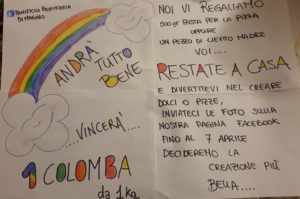 PANIFICIO PASTICCERIA
DI MARINO
ANDRÀ TUTTO
BENE
....VINCERÀ....
1 COLOMBA
da 1kg
NOI VI REGALIAMO
500gr PASTA PER LA PIZZA
OPPURE
UN PEZZO DI LIEVITO MADRE
VOI....
RESTATE A CASA
E DIVERTITEVI NEL CREARE
DOLCI O PIZZE,
INVIATECI LE FOTO SULLA
NOSTRA PAGINA FACEBOOK
FINO AL 7 APRILE
DECIDEREMO LA
CREAZIONE PIÙ
BELLA.....